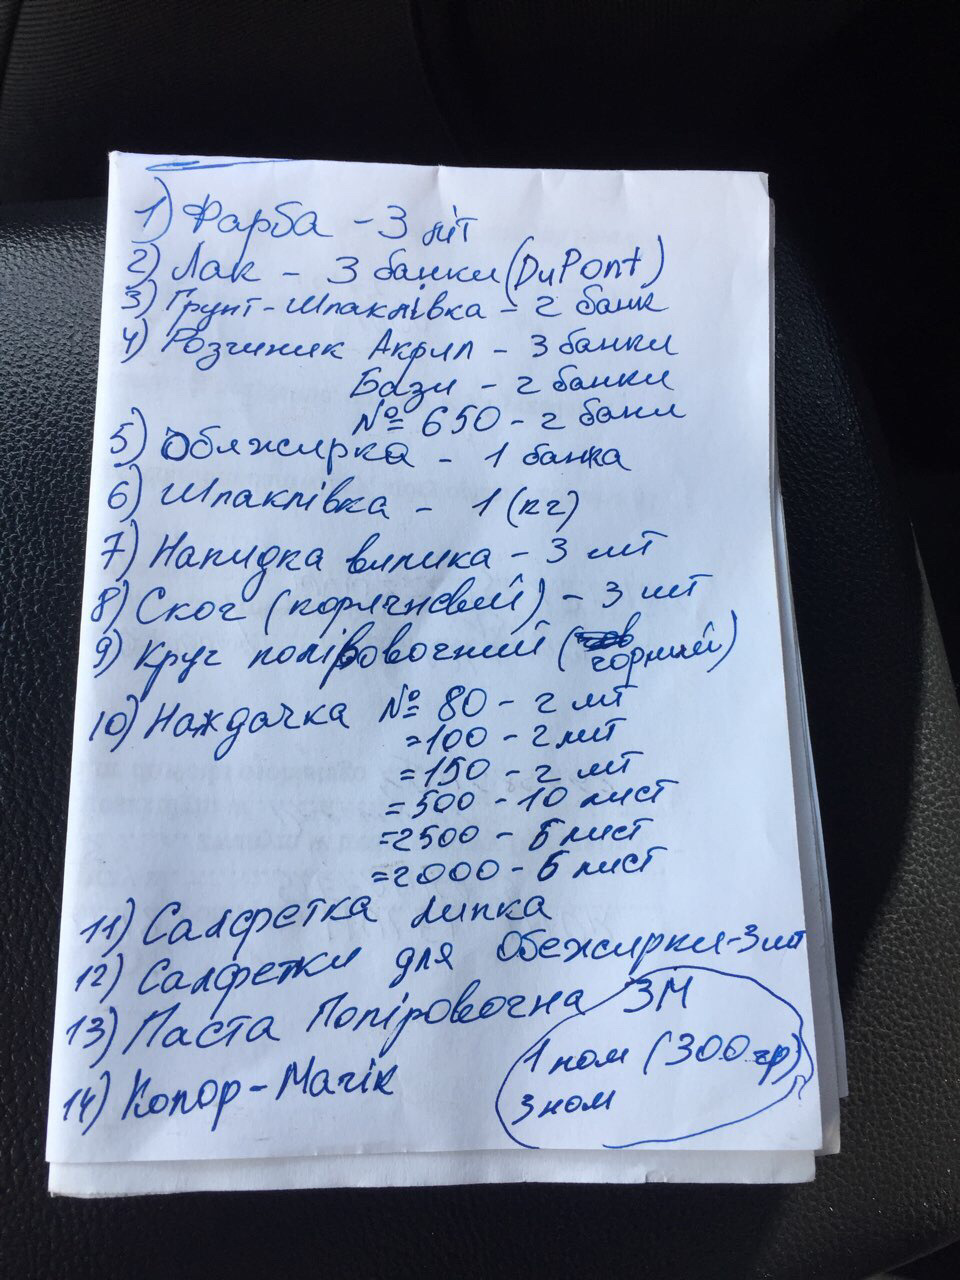 1) Фарба - 3 літ
2) Лак - 3 банки (DuPont)
3) Грунт-Шпаклівка - 2 банк
4) Розчиник Акрил - 3 банки
Бази - 2 банки
№ 650 - 2 банк
5) Обяжирка - 1 банка
6) Шпаклівка - 1 (кг)
7) Накидка вялика - 3 шт
8) Скоч (корячневий) - 3 шт
9) Круг поліровочний (чорний)
10) Наждачка № 80 - 2 шт
=100 - 2 шт
=150 - 2 шт
=500 - 10 лист
=2500 - 5 лист
=2000 - 5 лист
11) Салфетка липка
12) Салфетки для Обежирки - 3 шт
13) Паста Поліровочна 3М
1 ном (300 гр)
3 ном
14) Колор-Магік